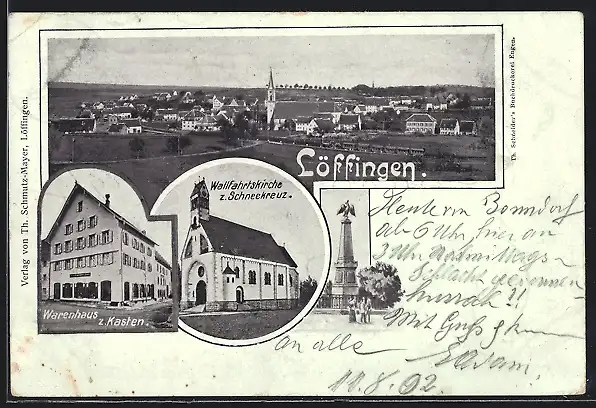 Verlag von Th. Schmutz-Mayer, Löffingen.
Th. Schneider's Buchdruckerei Engen.
Löffingen.
Wallfahrtskirche
z. Schneekreuz.
Warenhaus
z. Kasten.
Heute von Bonndorf
ab 6 Uhr hier an
2 Uhr Nachmittags
Schlacht gewonnen
hurrah!!
Mit Gruß
an alle
11.8.02